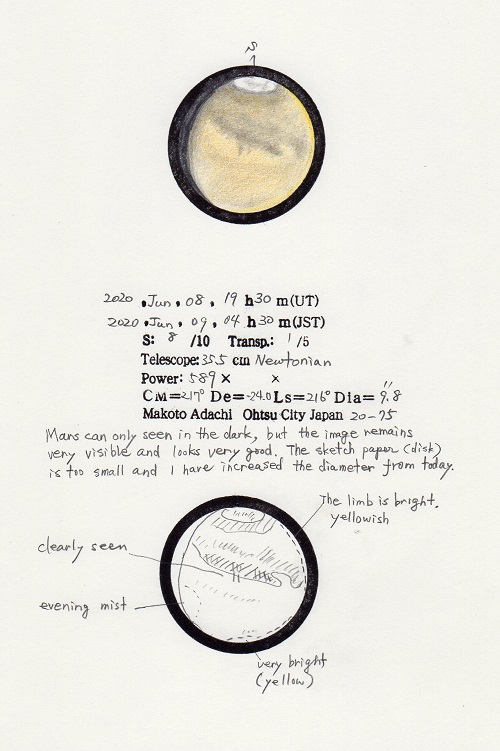 S
2020 . Jun . 08 , 19 h 30 m (UT)
2020 . Jun . 09 , 04 h 30 m (JST)
S: 8 /10 Transp.: 1 /5
Telescope: 355 cm Newtonian
Power: 589 × ×
CM=217° De=-24.0 Ls=216° Dia=9.8"
Makoto Adachi Ohtsu City Japan 20-75
Mars can only seen in the dark, but the image remains
very visible and looks very good. The sketch paper (disk)
is too small and I have increased the diameter from today.
The limb is bright.
yellowish
clearly seen
evening mist
very bright
(yellow)